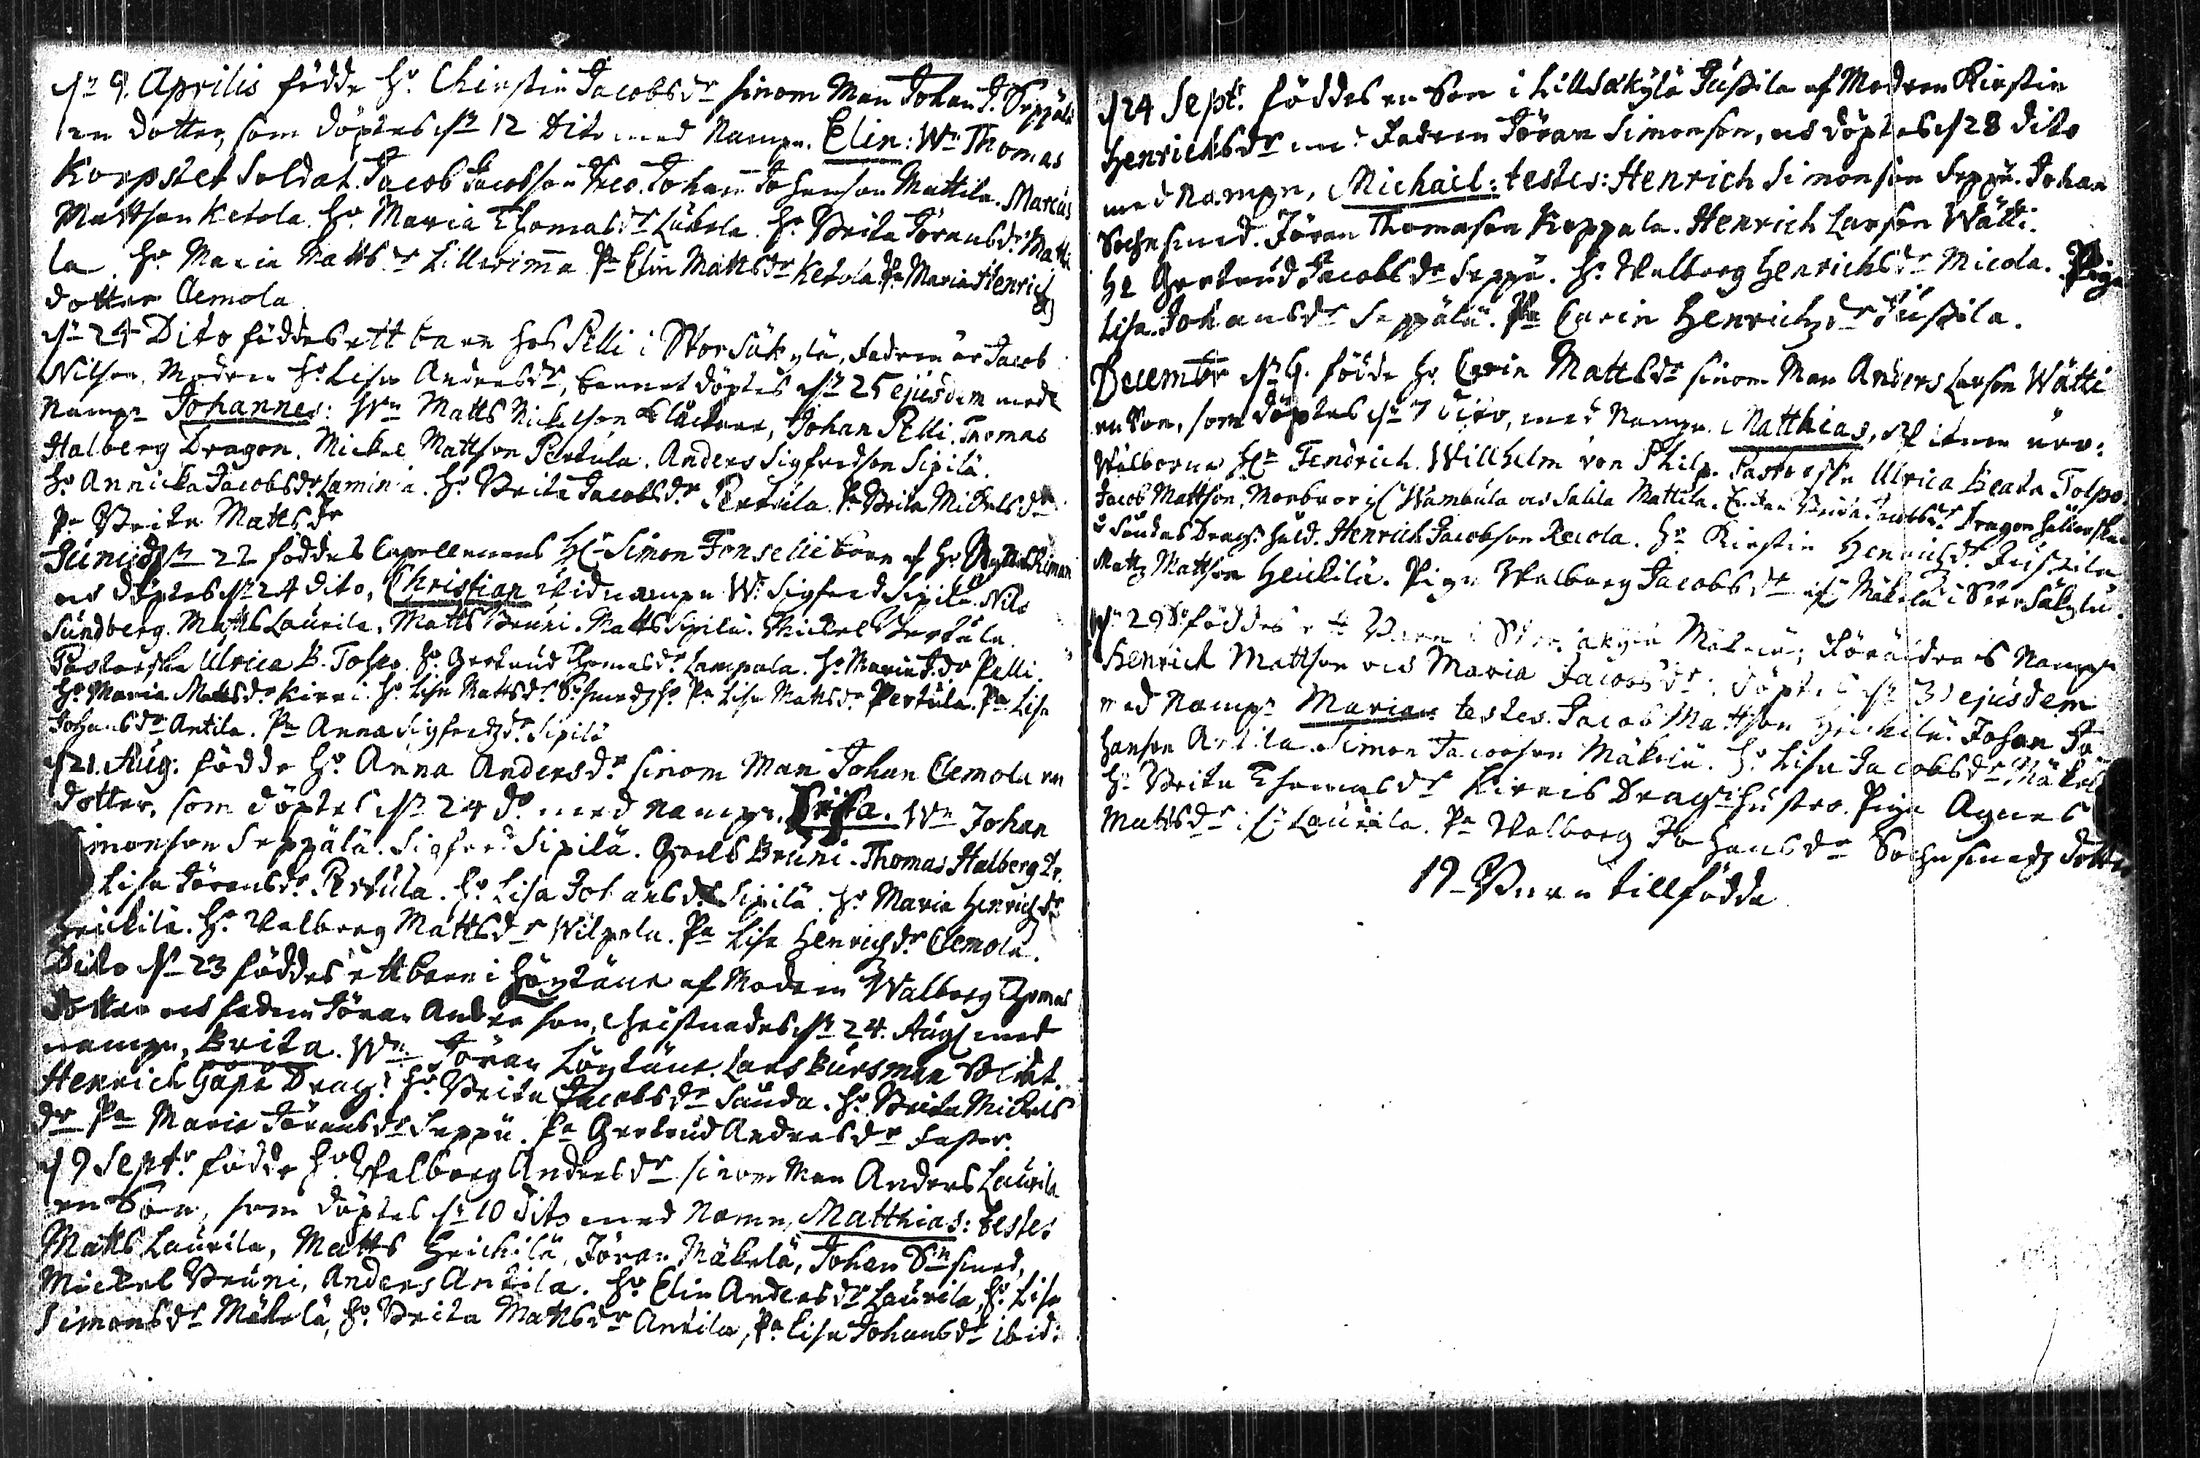 d. 9. Aprilis födde H:o Chirstin Jacobsdr sinom Man Johan J. Seppälä
en dotter, som döptes dn 12 Dito med Nampn. Elin: Wn Thomas
Korpstet Soldat. Jacob Jacobson Johan Johanson Mattila. Marcus
Mattson Ketola. H:o Maria Thomasdr Lukola. H:o Brita Göransdr Matti
la. H:o Maria Mattsdr Lillwima Pa Elin Mattsdr Ketola. Pa Maria Henrichs
dotter Clemola
dn 24 Dito föddes ett barn hos Pelli i Storsäkylä, Fadren är Jacob
Nilson, Modren H:o Lisa Andersdr, barnet döptes dn 25 ejusdem med
Nampn Johannes: Wn Matts Mickelson Klåckare, Johan Pelli. Thomas
Halberg Dragon. Mickel Mattson Pertula. Anders Sigfredson Sipilä.
H:o Annicka Jacobsdr Lamina. H:o Brita Jacobsdr Pertula. Pa Brita Mickelsdr
Pa Brita Mattsdr
Junii dn 22 föddes Capellanens H:r Simon Fonselii barn af H:o Agneta Riman
och döptes dn 24 dito, Christian widnampn Wn Sigfred Sipilä. Nils
Sundberg. Matts Laurila, Matts Bruni. Matts Sipilä. Mickel Pertula.
Pastorska Ulrica B. Tolpo. H:o Gertrud Thomasdr Lampola. H:o Maria J.dr Pelli.
H:o Maria Mattsdr Kirri. H:o Lisa Mattsdr Pa Lisa Mattsdr Pertula. Pa Lisa
Johansdr Antila. Pa Anna Sigfredzdr Sipilä
d 21. Aug: födde H:o Anna Andersdr sinom Man Johan Clemola en
dotter, som döptes dn 24 do med nampn, Lisa. Wn Johan
Simonson Seppälä. Sigfred Sipilä. Bruni. Thomas Halberg Dr.
Lisa Göransdr Pertula. H:o Lisa Johansdr Sipilä. H:o Maria Henrichsdr
Heickilä. H:o Valborg Mattsdr Wilpola. Pa Lisa Henrichdr Clemola.
Dito dn 23 föddes ett barn i Löytäne af Modren Walborg Thomas
dotter och fadren Jöran Anderson, christnades dn 24. Aug med
nampn, Brita. Wn Jöran Löytäne. Lars Bursman Soldat.
Henrich Gäpä Drag: H:o Brita Jacobsdr Sauda. H:o Brita Mickels
dr Pa Maria Göransdr Seppä. Pa Gertrud Andersdr
d 9 Septr födde H:o Valborg Andersdr sinom Man Anders Laurila
en Son, som döptes dn 10 dito med Namn, Matthias: testes
Matts Laurila, Matts Heickilä, Jöran Mäkelä, Johan Sn smed,
Mickel Bruni, Anders Antila. H:o Elin Andersdr Laurila, H:o Lisa
Simonsdr Mäkelä, H:o Brita Mattsdr Antila, Pa Lisa Johansdr ibid:
d 24 Septr föddes en Son i Lillsäkylä Jussila af Modren Kirstin
Henrichsdr med Fadren Jöran Simonson, och döptes d 28 dito
med Nampn, Michail: testes: Henrich Simonson Seppä. Johan
Sochnsmed. Jöran Thomason Koppala. Henrich Larson Wätti.
H:o Gertrud Jacobsdr Seppä. H:o Valborg Henrichsdr Micola. Piga
Lisa Johansdr Seppälä. Pa Carin Henrichzdr Jussila.
Decembr dn 4. födde H:o Carin Mattsdr sinom Man Anders Larson Wätti
en Son, som döptes dn 7 dito, med Nampn Matthias,
Wälborne H:r Fendrich Willhelm von Philp. Pastorska Ulrica Beata Tolpo.
Jacob Mattson, Wambula och Salila Mattila. Dragon
Henrich Jacobson Recola. H:o Kirstin Henrichsdr Jussila
Matts Mattson Heickilä. Piga Valborg Jacobsdr Mäkelä i Storsäkylä.
dn 29 Do föddes ett Barn i Storsäkylä Mäkelä; Föräldrars Nampn
Henrich Mattson och Maria Jacobsdr; döptes dn 31 ejusdem
med Nampn Maria testes. Jacob Mattson Heickilä. Johan Jo
hanson Antila. Simon Jacobson Mäkelä. H:o Lisa Jacobsdr Mäkelä
H:o Brita Thomasdr Kirris Dragns hustro. Piga Agnes
Mattsdr Laurila. Pa Valborg Johansdr Sochnsmedz dotter
19 Barn tillfödde